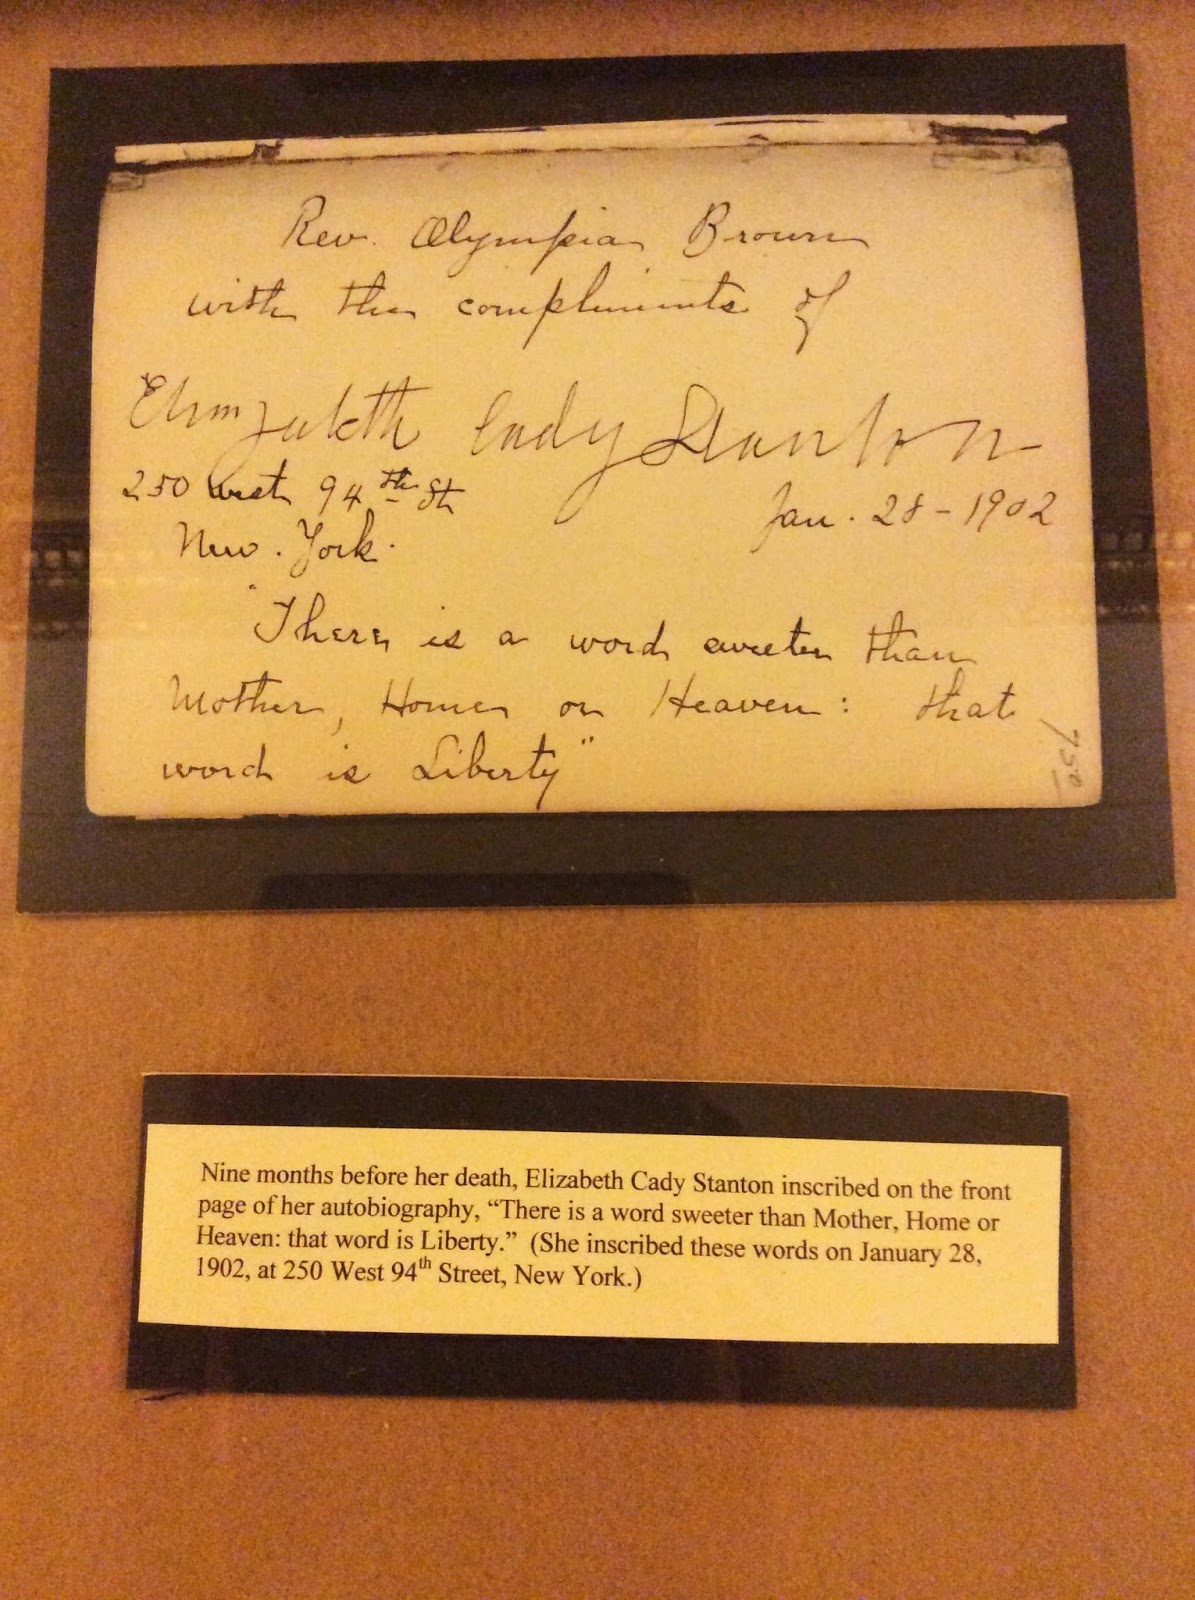 Rev. Olympia Brown
with the compliments of
Elizabeth Cady Stanton
250 West 94th St
Jan. 28-1902
New. York.
"There is a word sweeter than
Mother, Home or Heaven: that
word is Liberty"
750
Nine months before her death, Elizabeth Cady Stanton inscribed on the front
page of her autobiography, “There is a word sweeter than Mother, Home or
Heaven: that word is Liberty.” (She inscribed these words on January 28,
1902, at 250 West 94th Street, New York.)